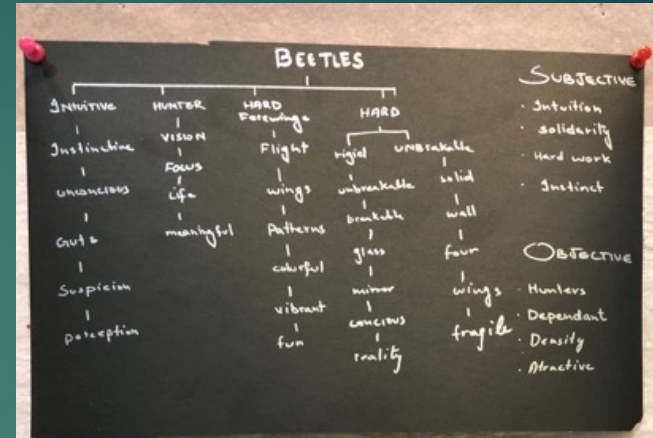 BEETLES
INTUITIVE
Instinctive
unconcious
Guts
Suspicion
perception
HUNTER
VISION
Focus
Life
meaningful
HARD
Forewings
Flight
wings
Patterns
colourful
vibrant
fun
HARD
rigid
unbreakable
breakable
glass
mirror
concious
reality
UNBreakable
solid
wall
four
wings
fragile
SUBJECTIVE
· Intuition
· soliderity
· Hard work
· Instinct
OBJECTIVE
· Hunters
· Dependant
· Density
· Atractive